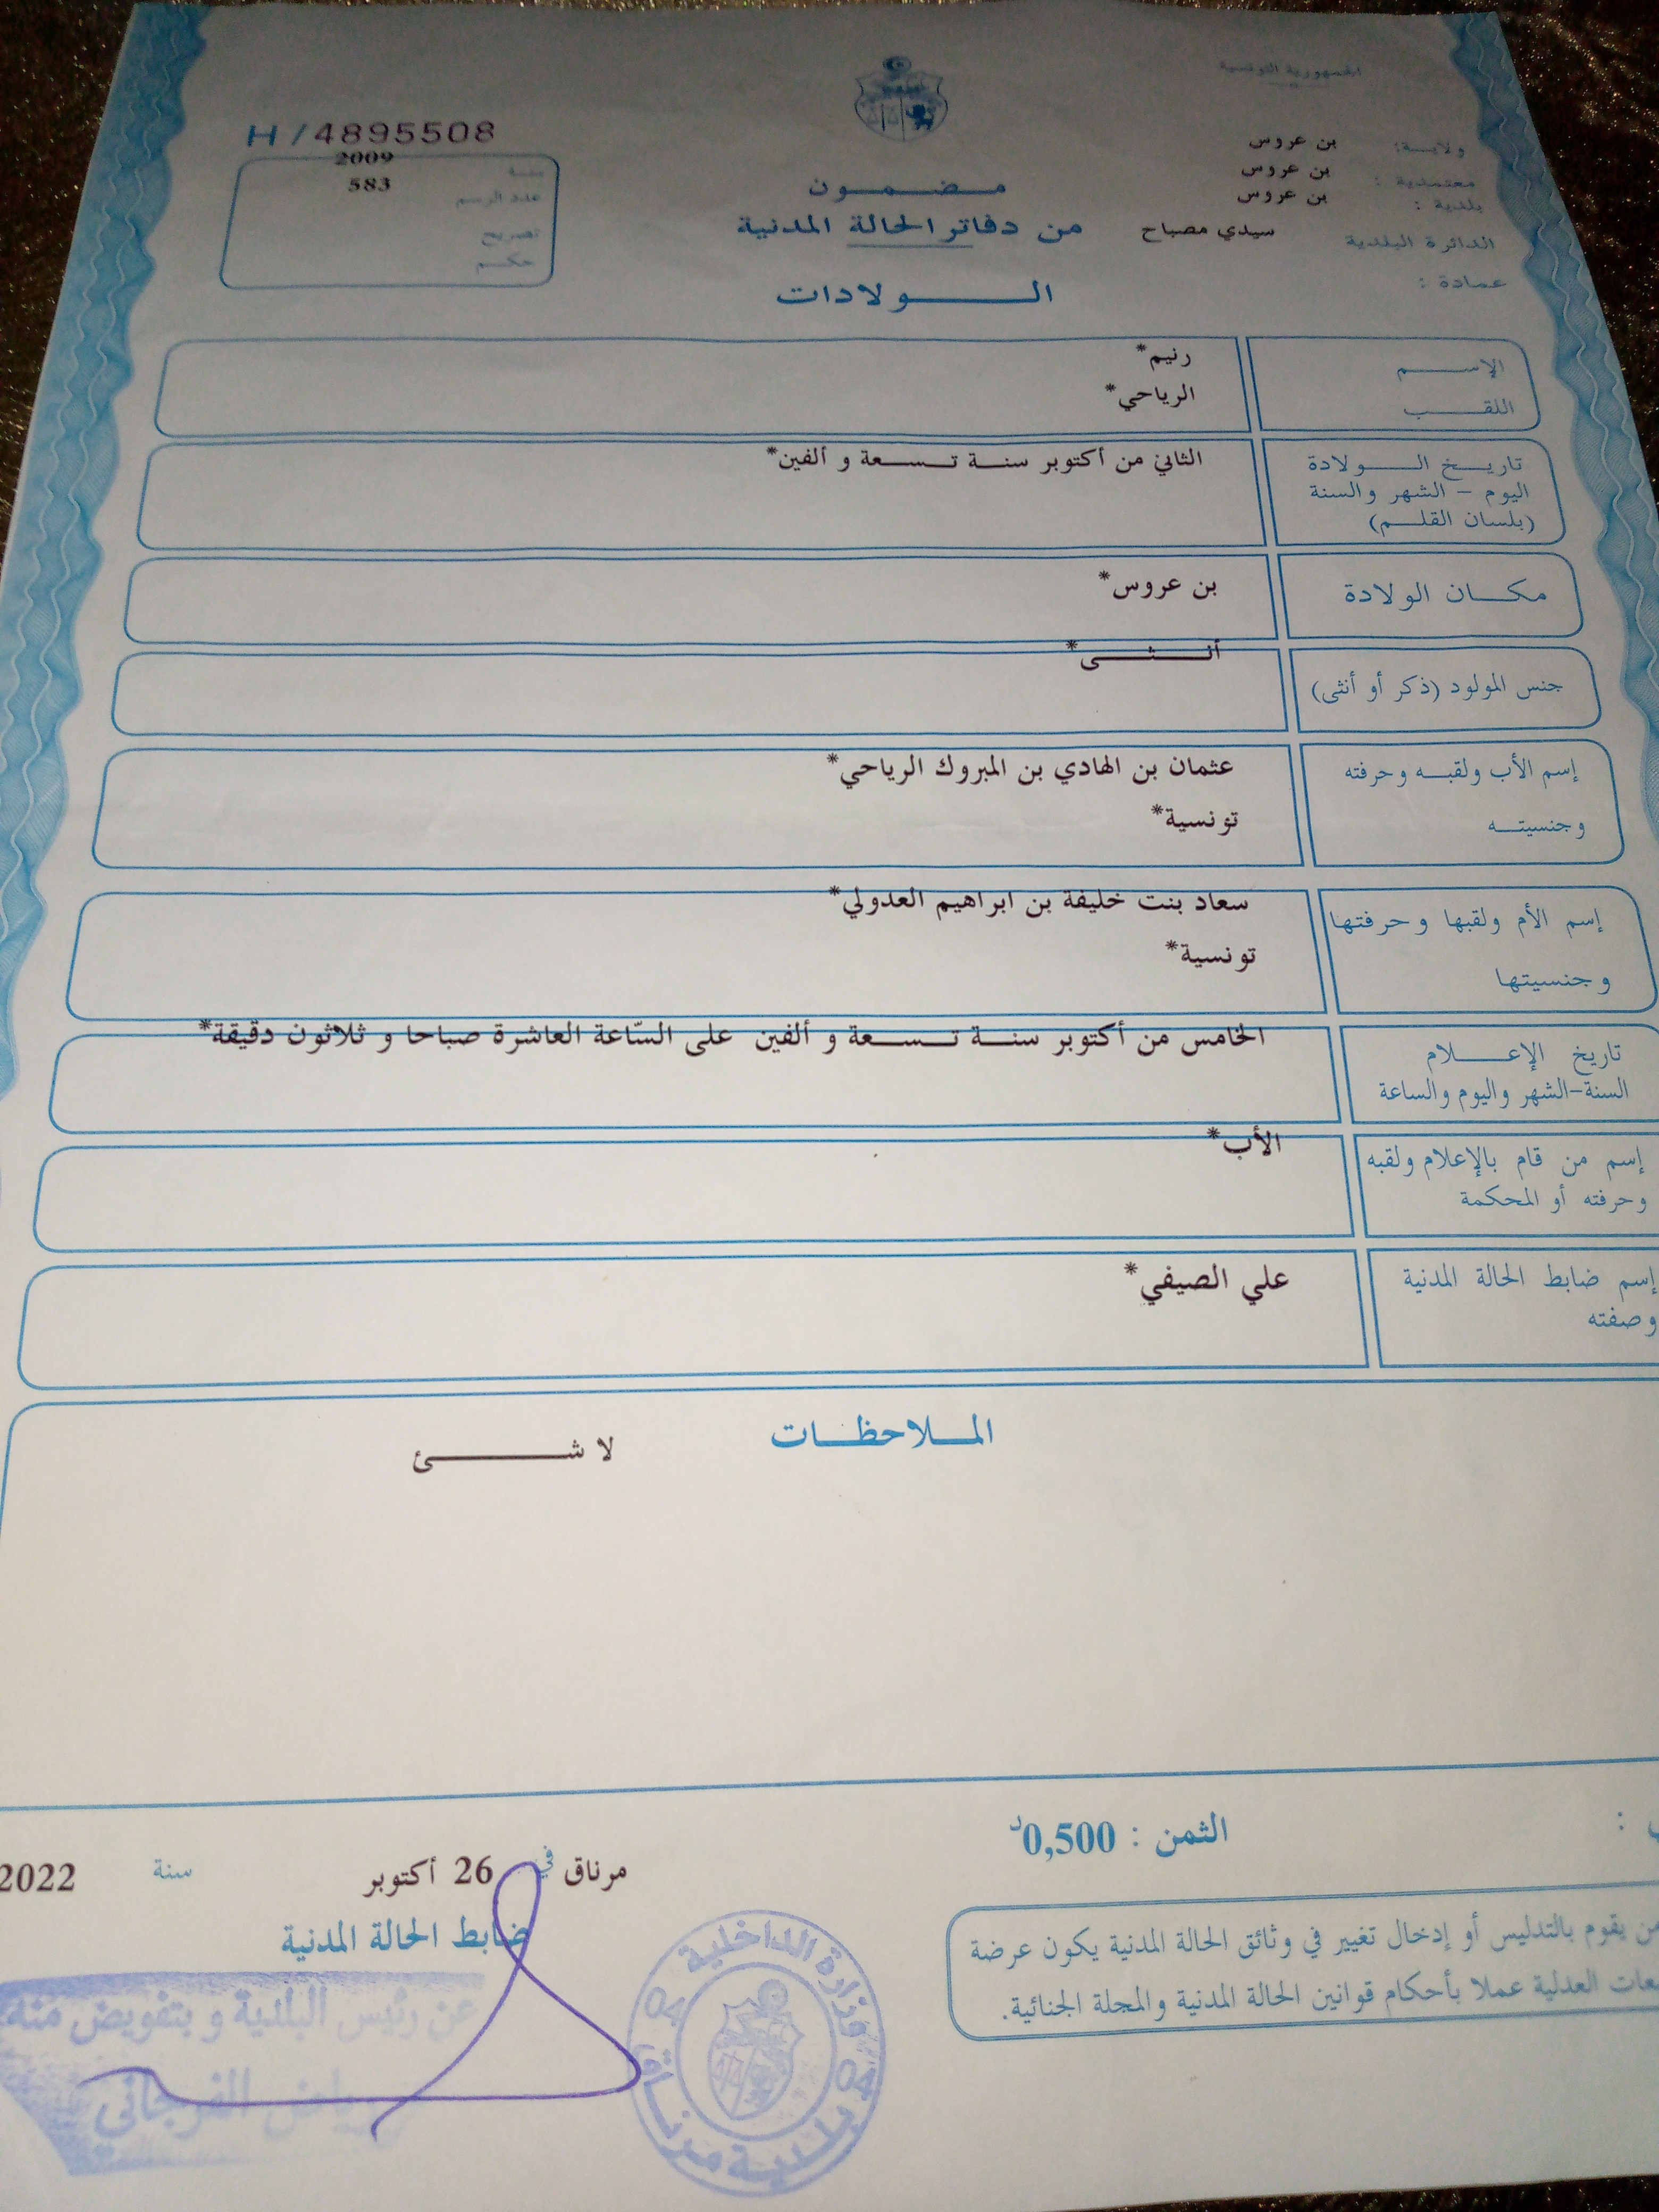 الجمهورية التونسية
ولاية: بن عروس
معتمدية : بن عروس
بلدية : بن عروس
الدائرة البلدية سيدي مصباح
عمادة :
مضمون
من دفاتر الحالة المدنية
الولادات
H/4895508
سنة 2009
عدد الرسم 583
تصريح
حكم
الإسم رنيم*
اللقب الرياحي*
تاريخ الولادة الثاني من أكتوبر سنة تسعة و ألفين*
اليوم - الشهر والسنة
(بلسان القلم)
مكان الولادة بن عروس*
جنس المولود (ذكر أو أنثى) أنثى*
إسم الأب ولقبه وحرفته عثمان بن الهادي بن المبروك الرياحي*
وجنسيته تونسية*
إسم الأم ولقبها وحرفتها سعاد بنت خليفة بن ابراهيم العدولي*
وجنسيتها تونسية*
تاريخ الإعلام الخامس من أكتوبر سنة تسعة و ألفين على السّاعة العاشرة صباحا و ثلاثون دقيقة*
السنة-الشهر واليوم والساعة
إسم من قام بالإعلام ولقبه الأب*
وحرفته أو المحكمة
إسم ضابط الحالة المدنية علي الصيفي*
وصفته
الملاحظات
لا شئ
الثمن : 0,500د
مرناق في 26 أكتوبر سنة 2022
ضابط الحالة المدنية
عن رئيس البلدية و بتفويض منه
رياض الفرجاني
وزارة الداخلية
04 04
بلدية مرناق
من يقوم بالتدليس أو إدخال تغيير في وثائق الحالة المدنية يكون عرضة
العدلية عملا بأحكام قوانين الحالة المدنية والمجلة الجنائية.